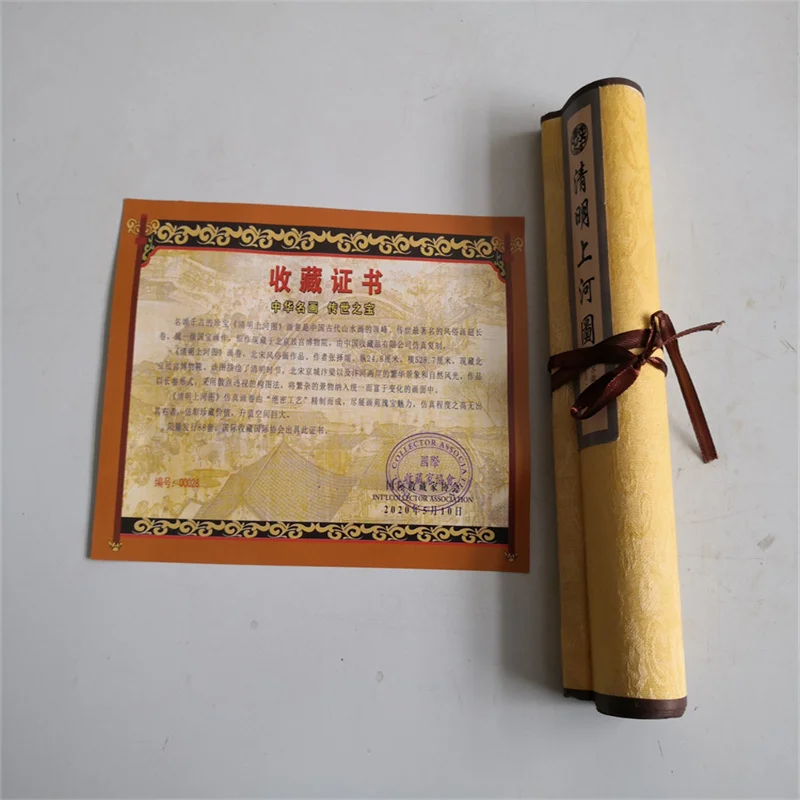 收藏证书
中华名画 传世之宝
名响千古的珍宝《清明上河图》画卷是中国古代山水画的顶峰，传世最著名的风俗画超长
卷，属一级国宝画作，原作现藏于北京故宫博物院，由中国收藏品有限公司仿真复制。
《清明上河图》画卷，北宋风俗画作品，作者张择端，纵24.8厘米，横528.7厘米，现藏北
京故宫博物院，此图描绘了清明时节，北宋京城汴梁以及汴河两岸的繁华景象和自然风光。作品
以长卷形式，采用散点透视的构图法，将繁杂的景物纳入统一而富于变化的画面中。
《清明上河图》仿真画卷由“绝密工艺”精制而成，尽展画苑瑰宝魅力，仿真程度之高无出
其右者，极具珍藏价值，升值空间巨大。
限量发行88套，国际收藏国际协会出具此证书。
编号：00028
COLLECTOR ASSOCIA
国际
收藏家协会
国际收藏家协会
INT'L COLLECTOR ASSOCIATION
2020年5月10日
清明上河圖